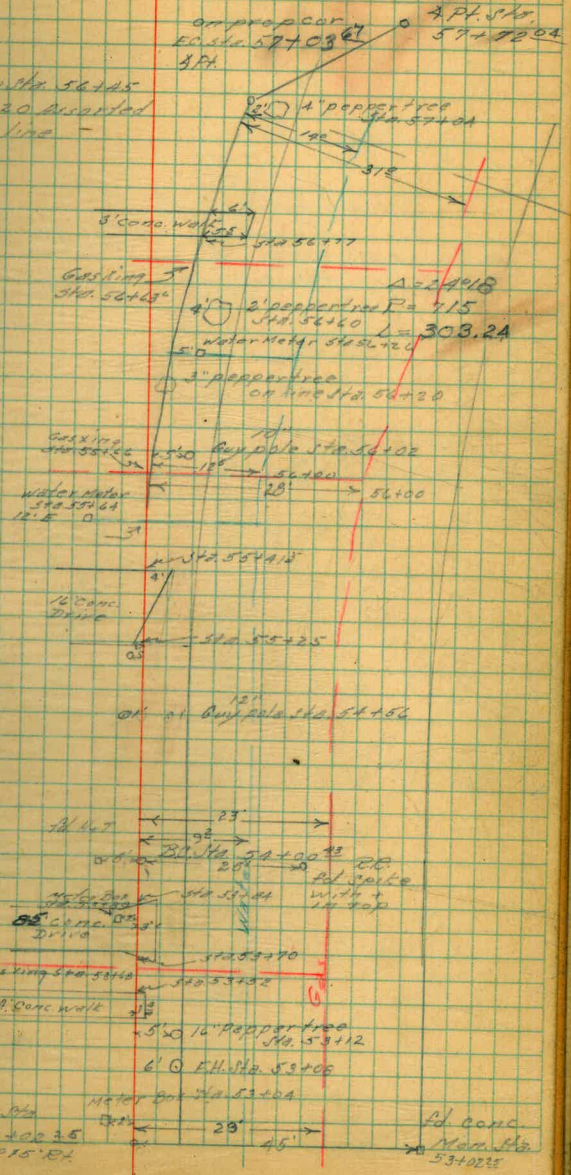 on prop cor
E.C. Sta. 57+03 67
4 Pt.
4 Pt. Sta.
57+72 04
Sta. 56+45
20 assorted
line
2'
4" pepper tree
Sta. 57+04
14 0
31 2
6'
5.5
3' Conc. walk
Sta 56+77
Gas King
Sta. 56+63
Δ = 24°18
R = 715
L = 303.24
4'
2' pepper tree
Sta. 56+60
Water Meter Sta 56+26
5'
3" pepper tree
on line Sta. 56+20
Gas xing
Sta. 55+66
5'
10"
Guy pole Sta. 56+02
12 5
56+00
28'
56+00
Water Meter
Sta 55+64
12' E
3"
Sta. 55+41 5
4'
16' Conc.
Drive
Sta. 55+25
05
12"
Guy pole Sta. 54+56
23'
9 2
B.C. Sta. 54+00 43
20'
R.R.
fd. Spike
with +
in top
Meter Box
Sta 53+84
8 5 conc.
Drive
Water
Sta. 53+70
xing Sta. 53+63
Sta 53+52
Gas
Conc. walk
5'
16" Pepper tree
Sta. 53+12
6'
F.H. Sta. 53+06
Meter Box Sta. 53+04
23'
45'
fd. conc.
Mon. Sta.
53+02 25
Sta
+02 25
15' Rt.